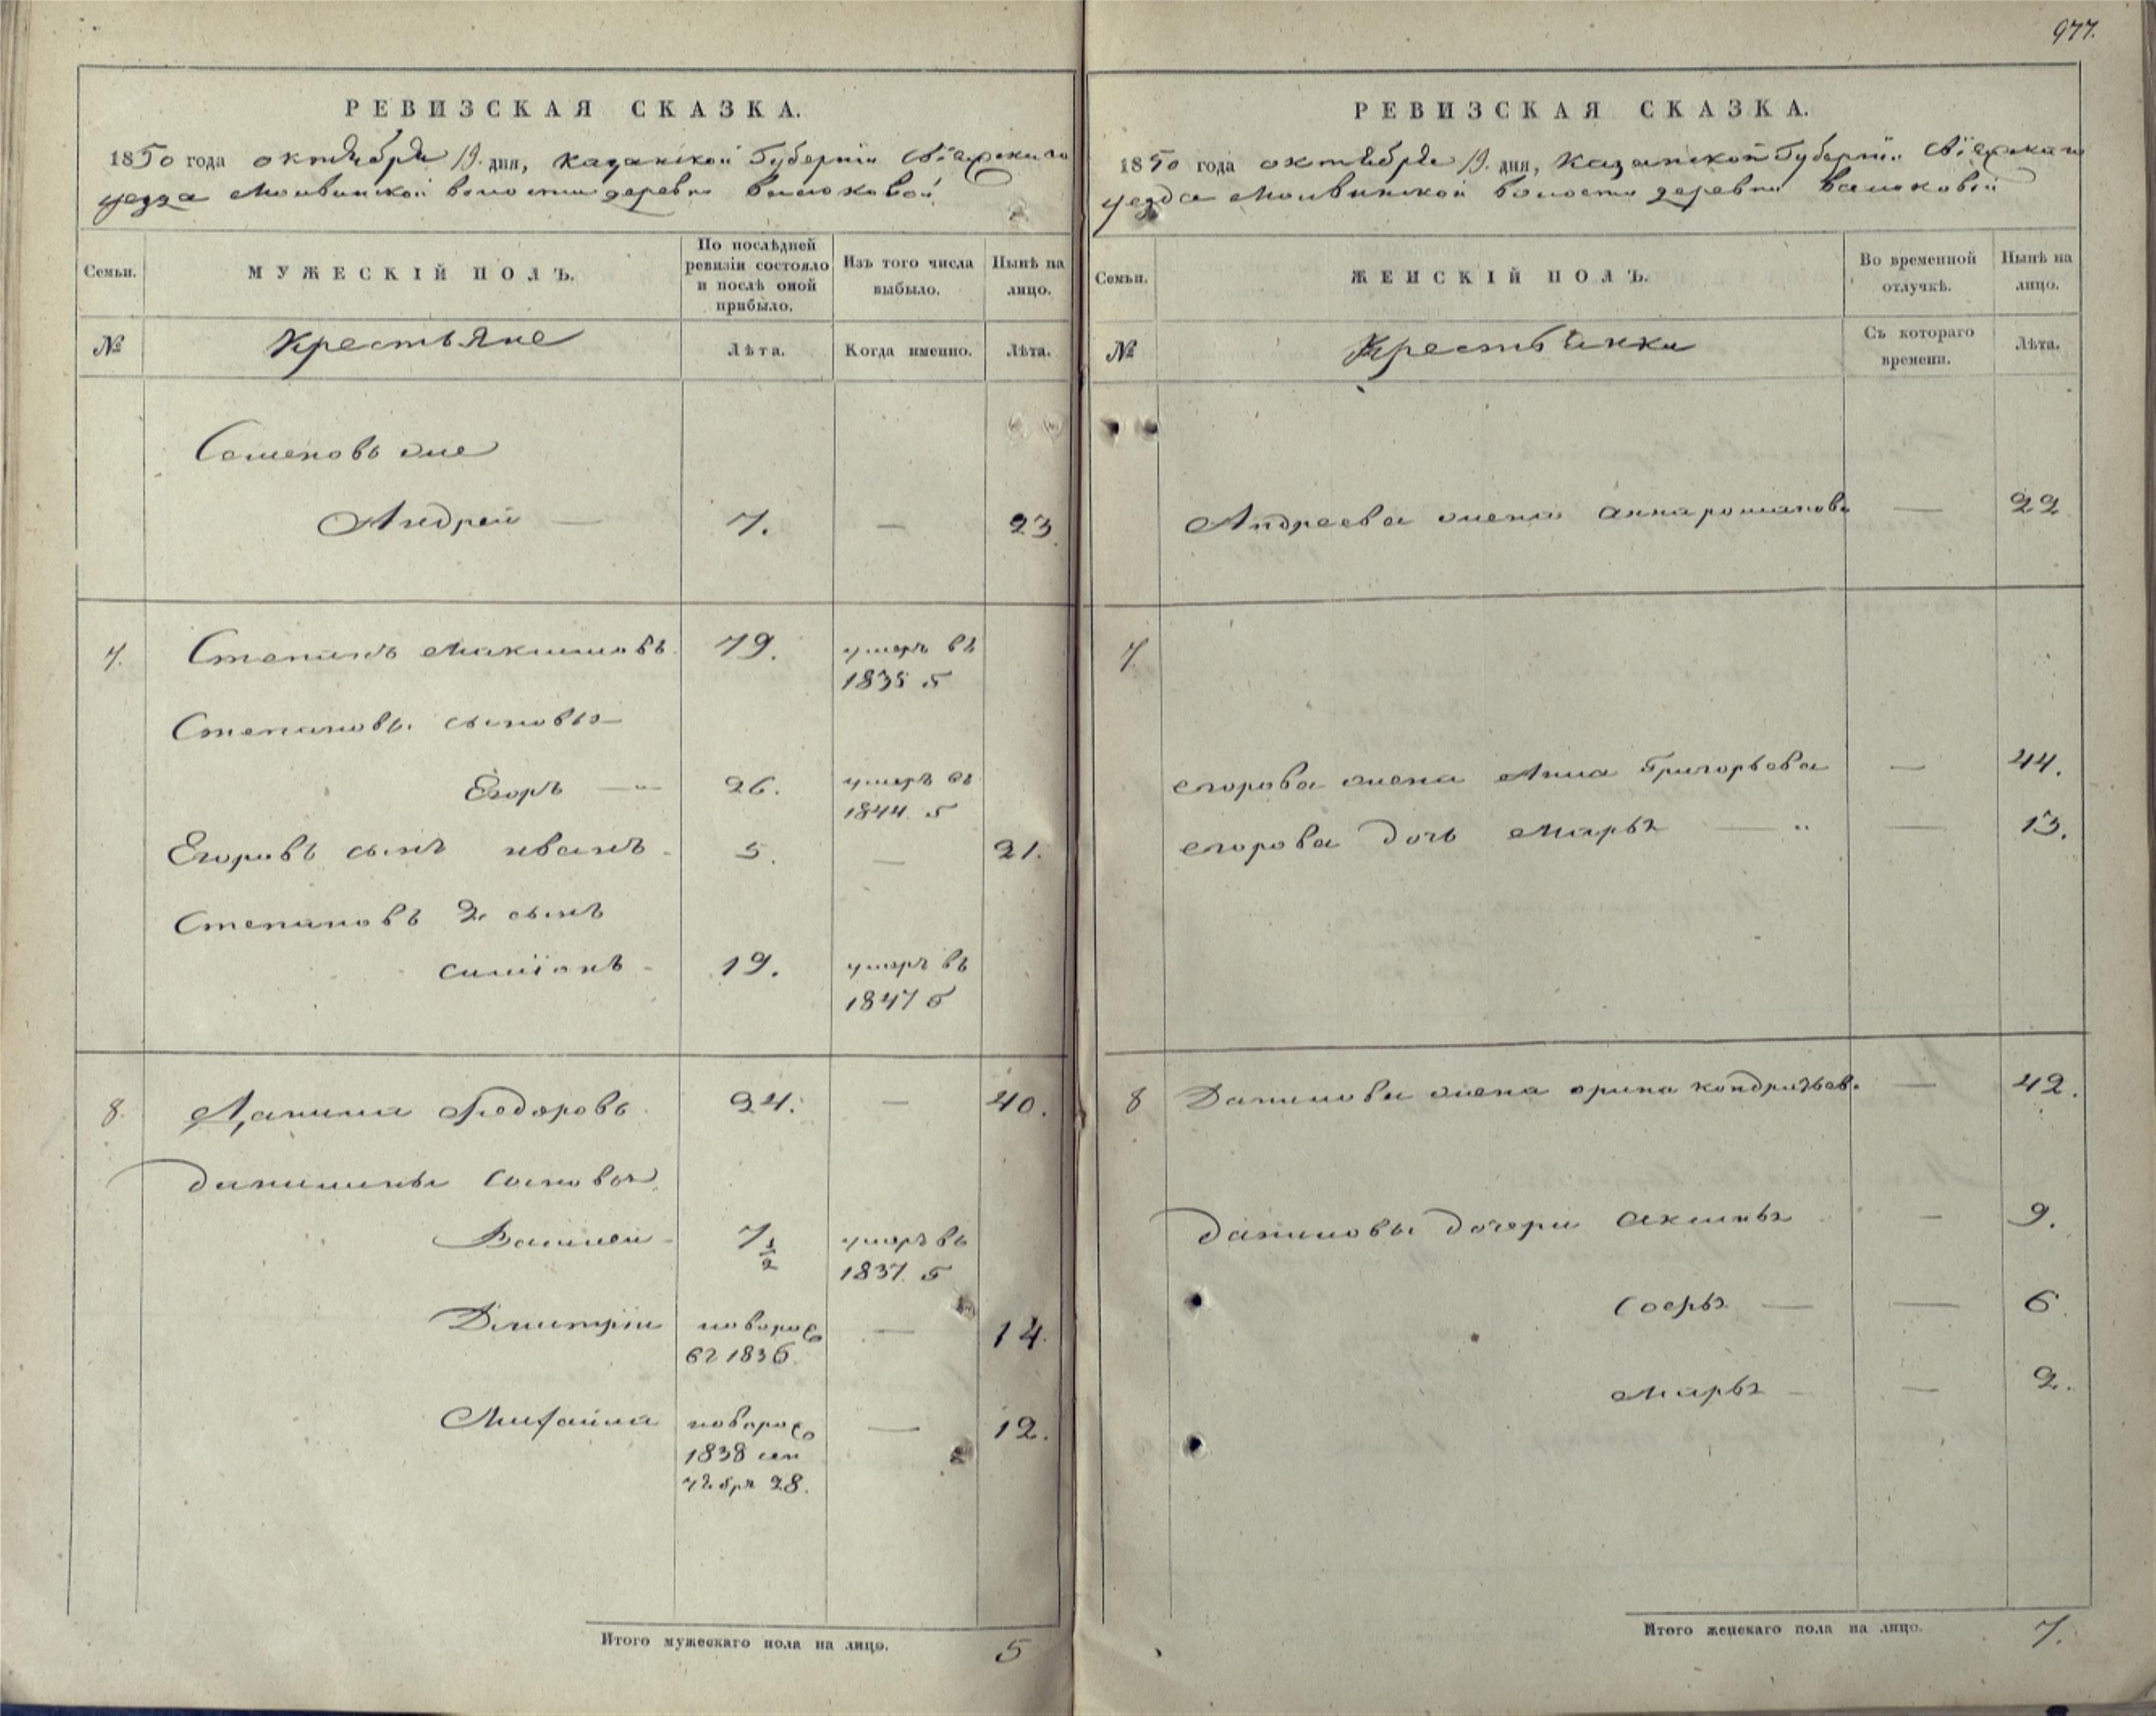 977.
РЕВИЗСКАЯ СКАЗКА.
1850 года октября 19. дня, Казанской Губернiи Свiяжскаго
уезда Моивинской волости деревни Васюковой
Семьи.
МУЖЕСКIЙ ПОЛЪ.
По послѣдней ревизiи состояло и послѣ оной прибыло.
Изъ того числа выбыло.
Нынѣ на лицо.
№
Крестьяне
Лѣта.
Когда именно.
Лѣта.
Семеновъ же
Андрей — 7. — 23
7. Степанъ Максимовъ 79. умеръ въ
1835 г
Степановы сыновья
Егоръ — 26. умеръ въ
1844 г
Егоровъ сынъ иванъ 5. — 21.
Степановъ 2. сынъ
симiонъ 19. умеръ въ
1847 г
8. Данила Федоровъ 24. — 40.
данилины сыновья
Василей 7 1/2 умеръ въ
1837 г
Дмитрiй новорож
въ 1836 — 14.
Михайла новорож — 12.
1838 сен
тября 28.
Итого мужескаго пола на лицо. 5
РЕВИЗСКАЯ СКАЗКА.
1850 года октября 19. дня, Казанской Губернiи Свiяжскаго
уезда Моивинской волости деревни Васюковой
Семьи.
ЖЕНСКIЙ ПОЛЪ.
Во временной отлучкѣ.
Нынѣ на лицо.
№
Крестьянки
Съ котораго времени.
Лѣта.
Андреева жена анна романова — 22
7.
егорова жена Анна Григорьева — 44.
егорова дочь марья — 13.
8 Данилова жена орина кондратьева — 42.
даниловы дочери аксинья — 9.
софья — 6
марья — 2.
Итого женскаго пола на лицо. 7.